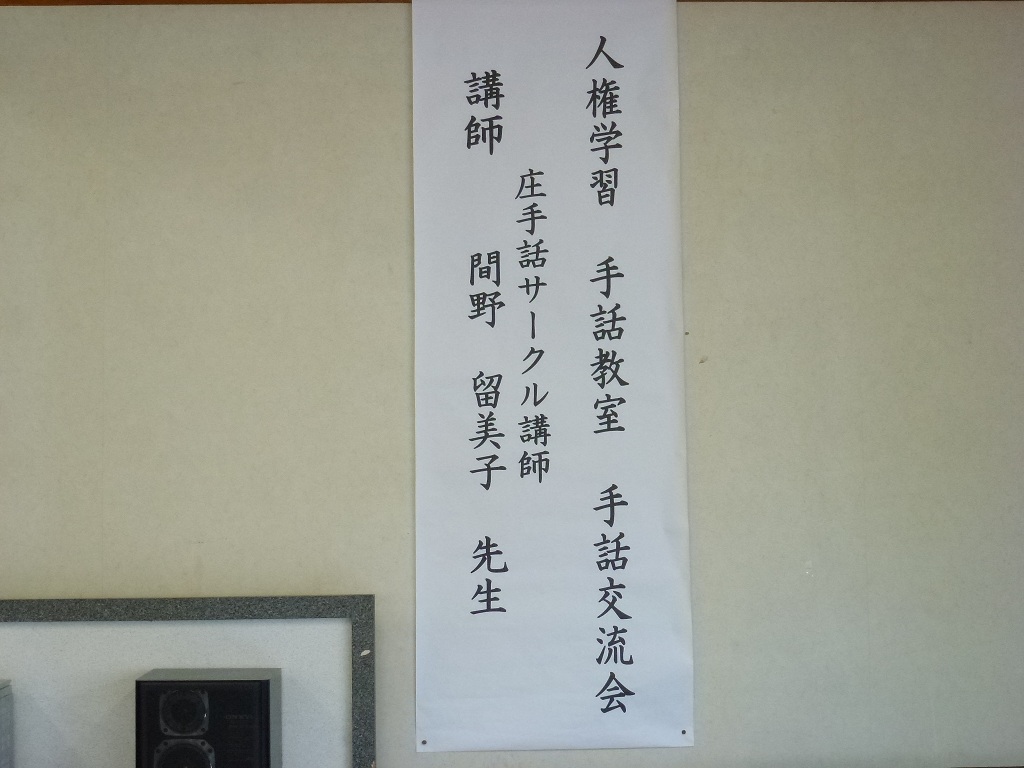 人権学習 手話教室 手話交流会
庄手話サークル講師
講師 間野 留美子 先生